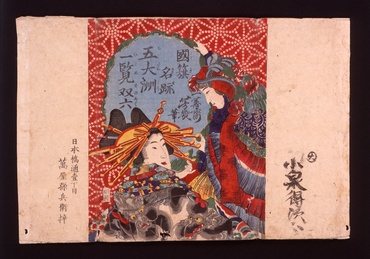 國籏
名跡
五大洲
一覧双六
芳幾
筆
日本橋通壹丁目
萬屋孫兵衛梓
小泉